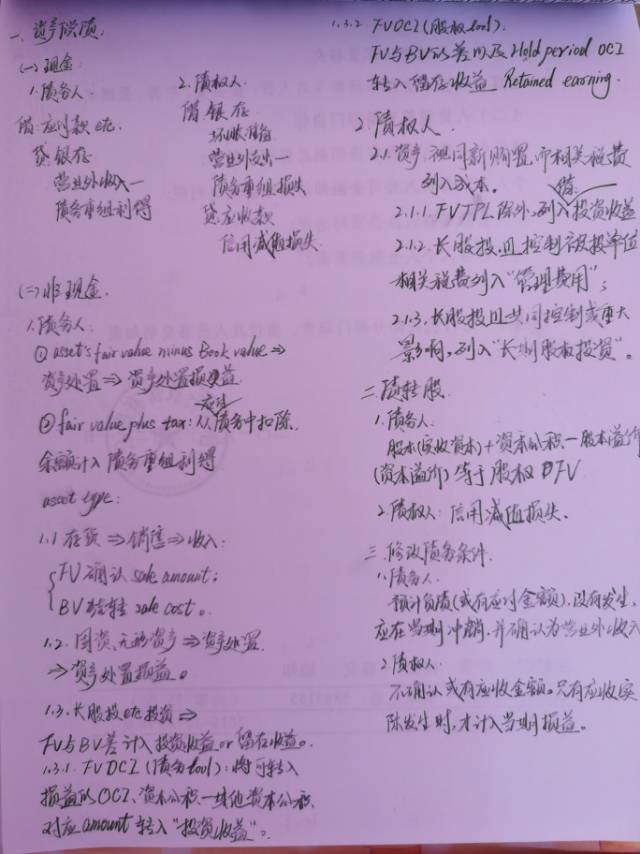 一、资产偿债:
(一)现金:
1.债务人
借:应付款 etc.
贷:银存
营业外收入一
债务重组利得
2.债权人
借:银存
坏账准备
营业外支出一
债务重组损失
贷:应收款
信用减值损失
(二)非现金.
1.债务人:
① asset's fair value minus Book value ⇒
资产处置⇒资产处置损益.
② fair value plus tax: 从债务中扣除.
应让
余额计入债务重组利得
asset type:
1.1 存货⇒销售⇒收入:
FV确认 sale amount;
BV结转 sale cost。
1.2. 固资、无形资产⇒资产处置
⇒资产处置损益。
1.3.长股投etc投资⇒
FV与BV差计入投资收益 or 留存收益。
1.3.1. FVOCI(债务tool):将可转入
损益的OCI、资本公积一其他资本公积
对应amount转入“投资收益”。
1.3.2. FVOCI(股权tool):
FV与BV的差以及Hold period OCI
转入留存收益 Retained earning.
2.债权人.
2.1.资产,视同新购置,而相关税费
列入成本.
借:
2.1.1. FVTPL除外,列入投资收益
2.1.2. 长股投且控制被投单位
相关税费列入“管理费用”;
2.1.3.长股投且共同控制或重大
影响,列入“长期股权投资”。
二.债转股.
1.债务人.
股本(实收资本)+资本公积一股本溢价
(资本溢价)等于股权FV
2.债权人:信用减值损失.
三.修改债务条件.
1.债务人.
预计负债(或有应付金额).没有发生,
应在当期冲销,并确认为营业外收入
2.债权人.
不确认或有应收金额。只有应收实
际发生时,才计入当期损益。